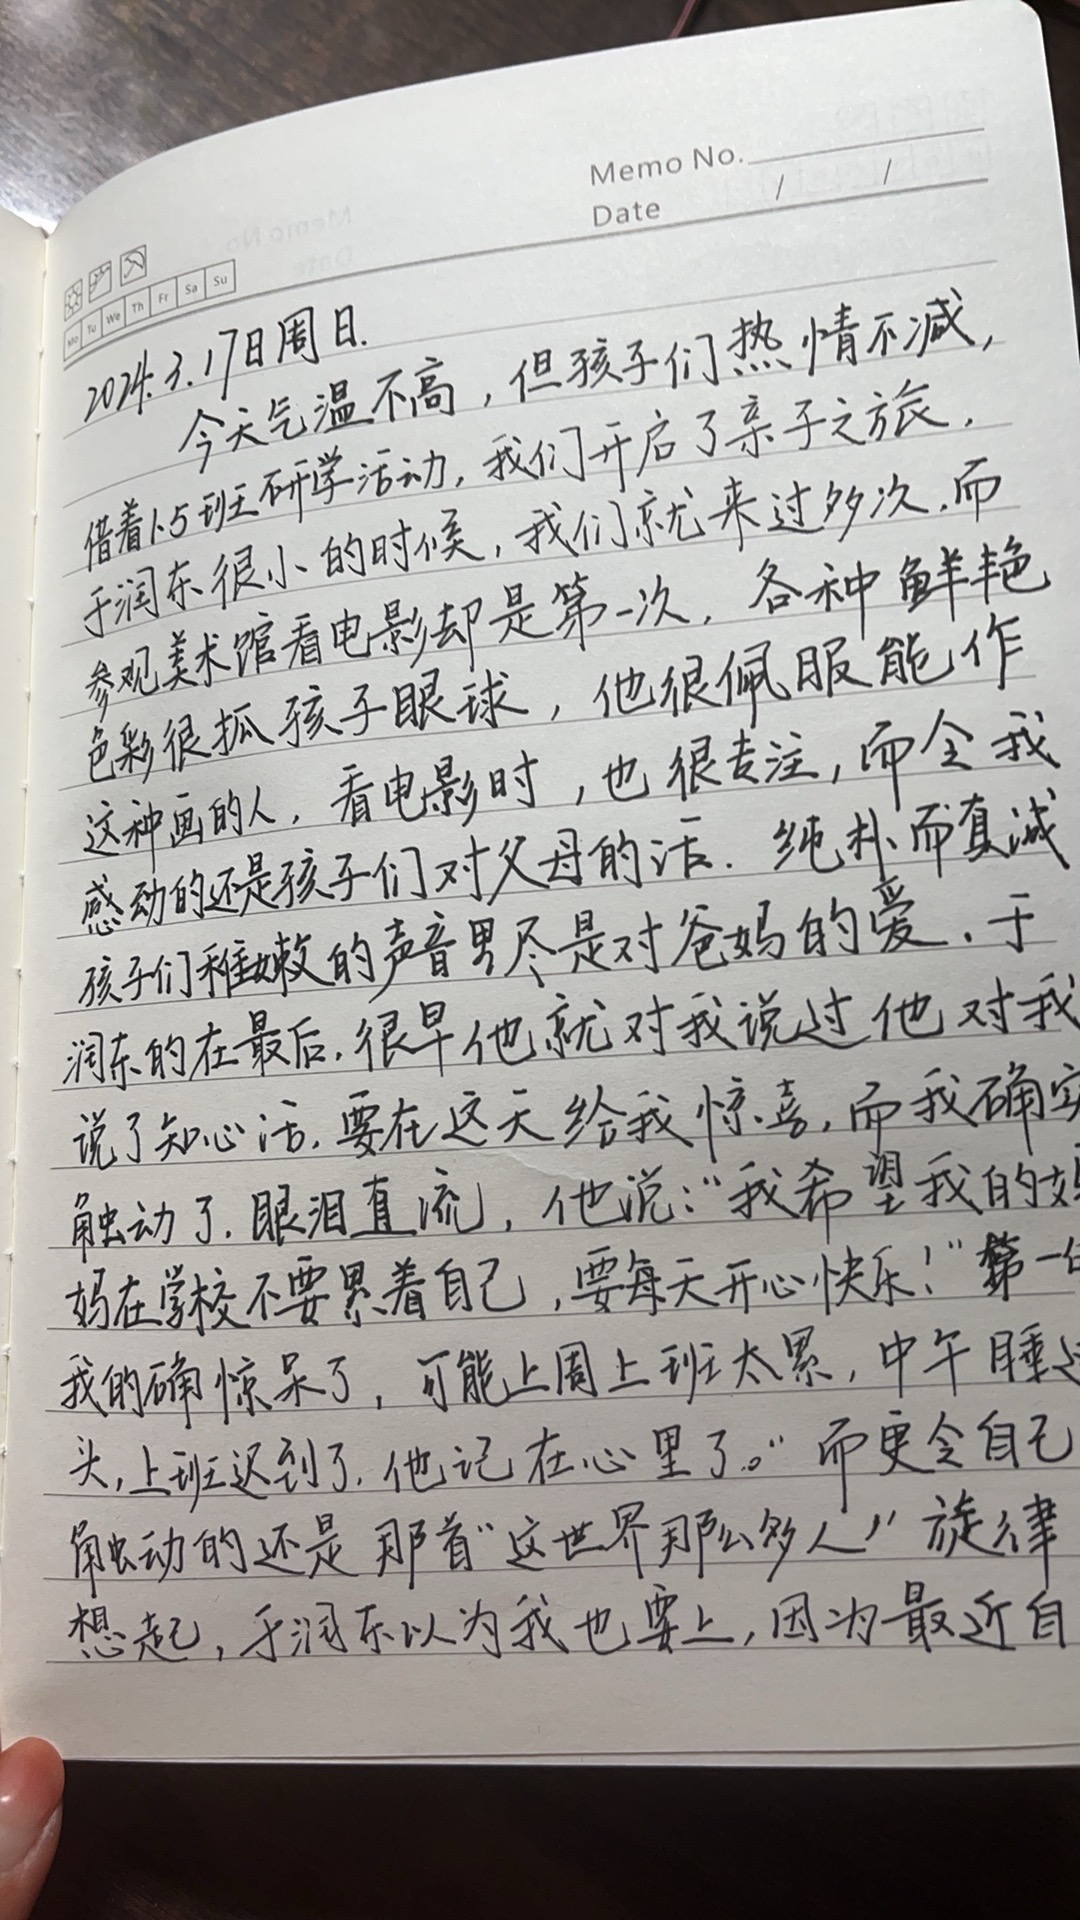 Memo No.
Date / /
Mo Tu We Th Fr Sa Su
2024.3.17日周日.
今天气温不高，但孩子们热情不减，
借着1.5班研学活动，我们开启了亲子之旅，
于润东很小的时候，我们就来过多次，而
参观美术馆看电影却是第一次，各种鲜艳
色彩很抓孩子眼球，他很佩服能作
这种画的人，看电影时，也很专注，而令我
感动的还是孩子们对父母的话．纯朴而真诚
孩子们稚嫩的声音里尽是对爸妈的爱，于
润东的在最后，很早他就对我说过他对我
说了知心话，要在这天给我惊喜，而我确实
触动了，眼泪直流，他说：“我希望我的妈
妈在学校不要累着自己，要每天开心快乐！”第一
我的确惊呆了，可能上周上班太累，中午睡过
头，上班迟到了，他记在心里了。”而更令自己
触动的还是那首“这世界那么多人”旋律
想起，于润东以为我也要上，因为最近自